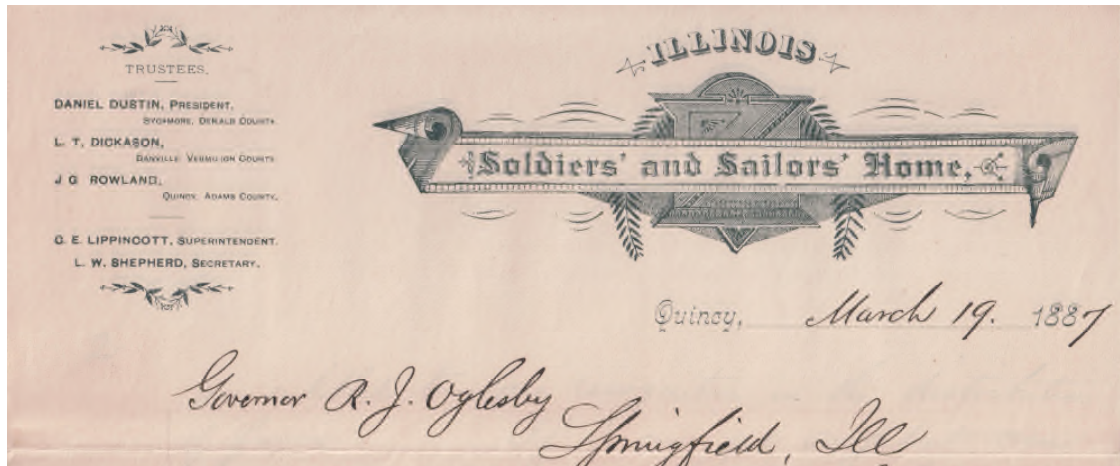 TRUSTEES.
DANIEL DUSTIN, PRESIDENT.
SYCAMORE, DEKALB COUNTY.
L. T. DICKASON,
DANVILLE, VERMILION COUNTY.
J G ROWLAND,
QUINCY, ADAMS COUNTY.
C. E. LIPPINCOTT, SUPERINTENDENT.
L. W. SHEPHERD, SECRETARY.
ILLINOIS
Soldiers' and Sailors' Home,
Quincy, March 19. 1887
Governor R. J. Oglesby
Springfield, Ill